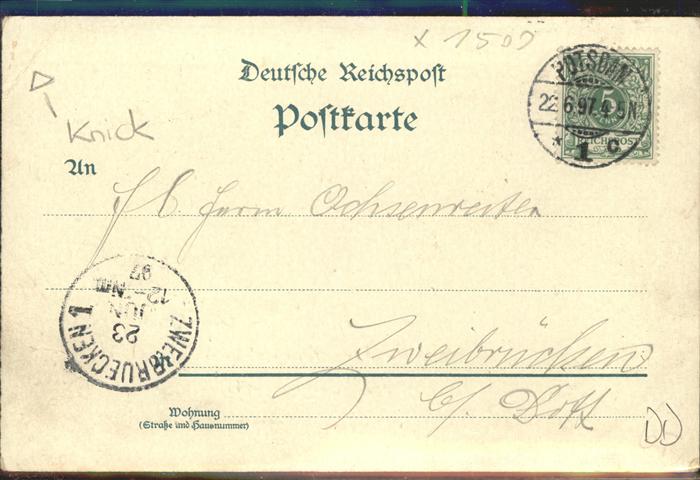 x 1500
Deutsche Reichspost
Postkarte
POTSDAM
22 6.97.4-5N
* 1 c
5
REICHSPOST
Knick
An
Herrn Ochsenreiter
ZWEIBRUECKEN 1
23
JUN
12- NM
97
Zweibrücken
Wohnung
(Straße und Hausnummer)